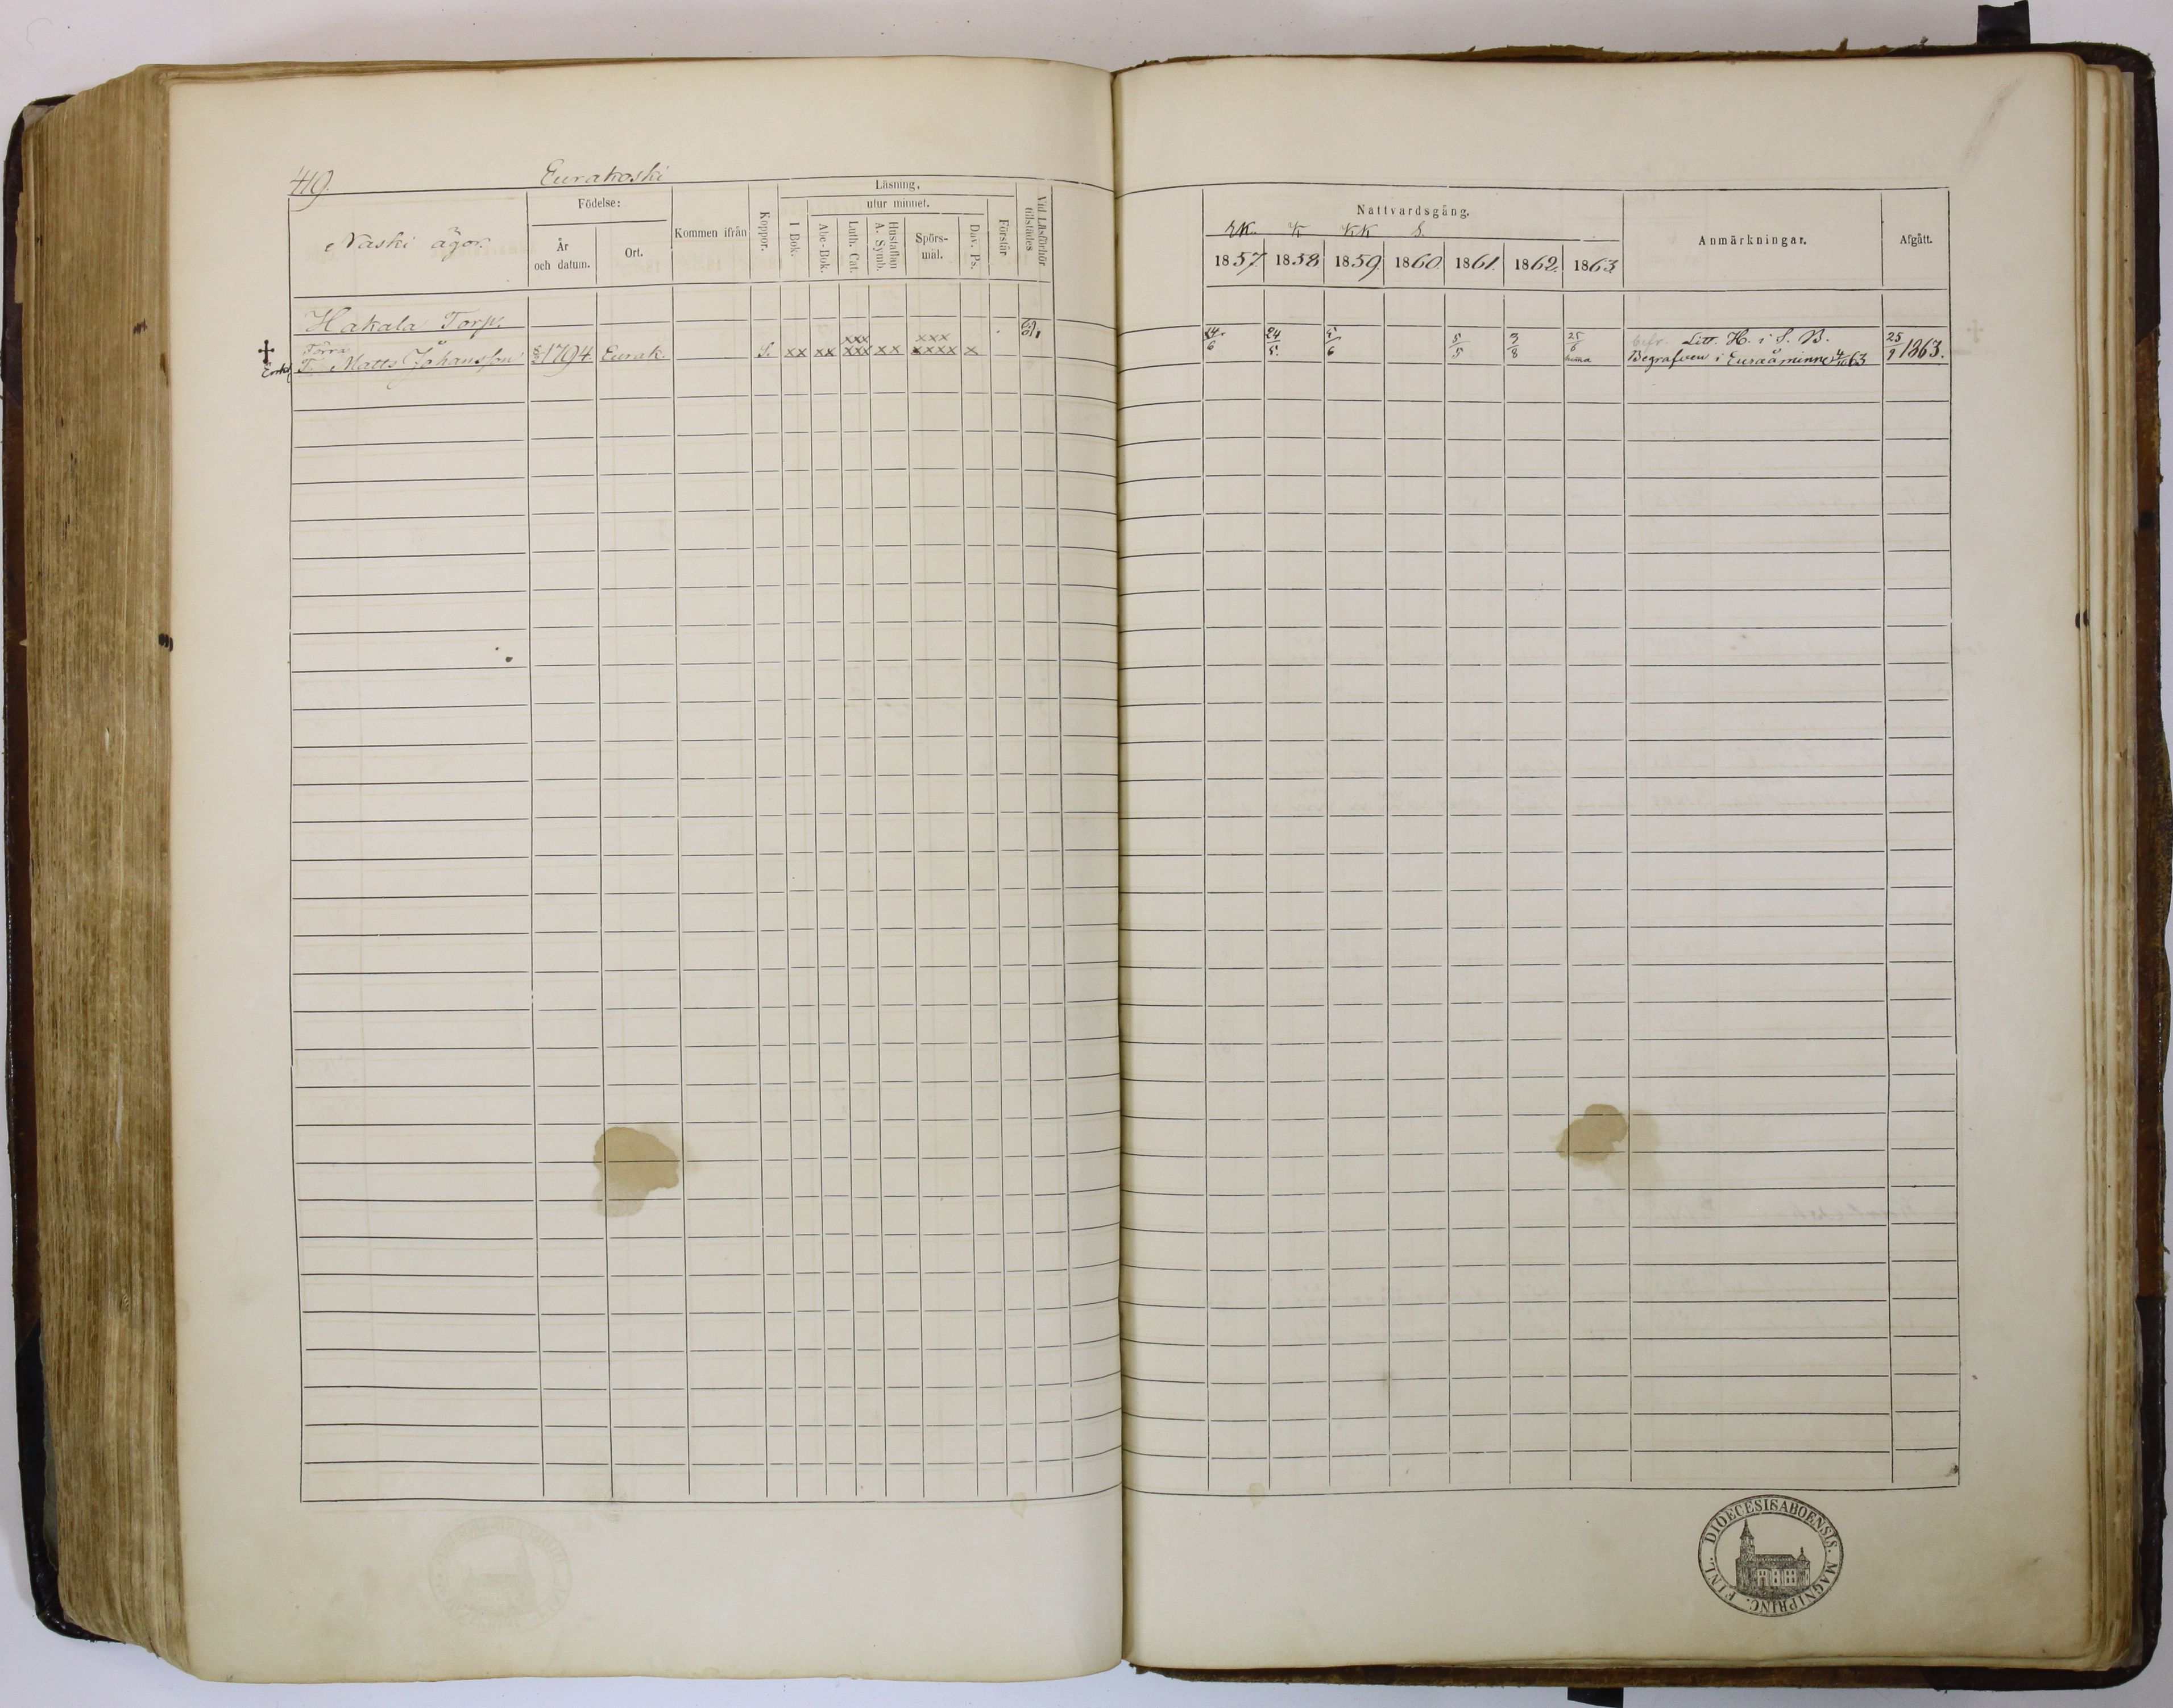 419.
Eurakoski
Naski ägor.
Födelse:
År
och datum.
Ort.
Kommen ifrån
Koppor.
Läsning.
utur minnet.
I Bok.
Abc-Bok.
Luth. Cat.
Hustaflan
A. Symb.
Spörs-
mål.
Dav. Ps.
Förstår
Vid Läsförhör
tillstädes
Nattvardsgång.
1857. 1858 1859 1860 1861. 1862. 1863
Anmärkningar.
Afgått.
Hakala Torp.
Förra
T. Matts Johansson 1794. Eurak. S. xx xx xxx xxx xx xxx xxxx x
Enkl
24/6 24/5. 5/6 5/5 3/8 25/6
befr. Litt. H. i S. B.
Begrafven i Euraåminne 4/10 63
25/9 1863.
FINL. DIOECESIS ABOENSIS. MAGNI PRINC.